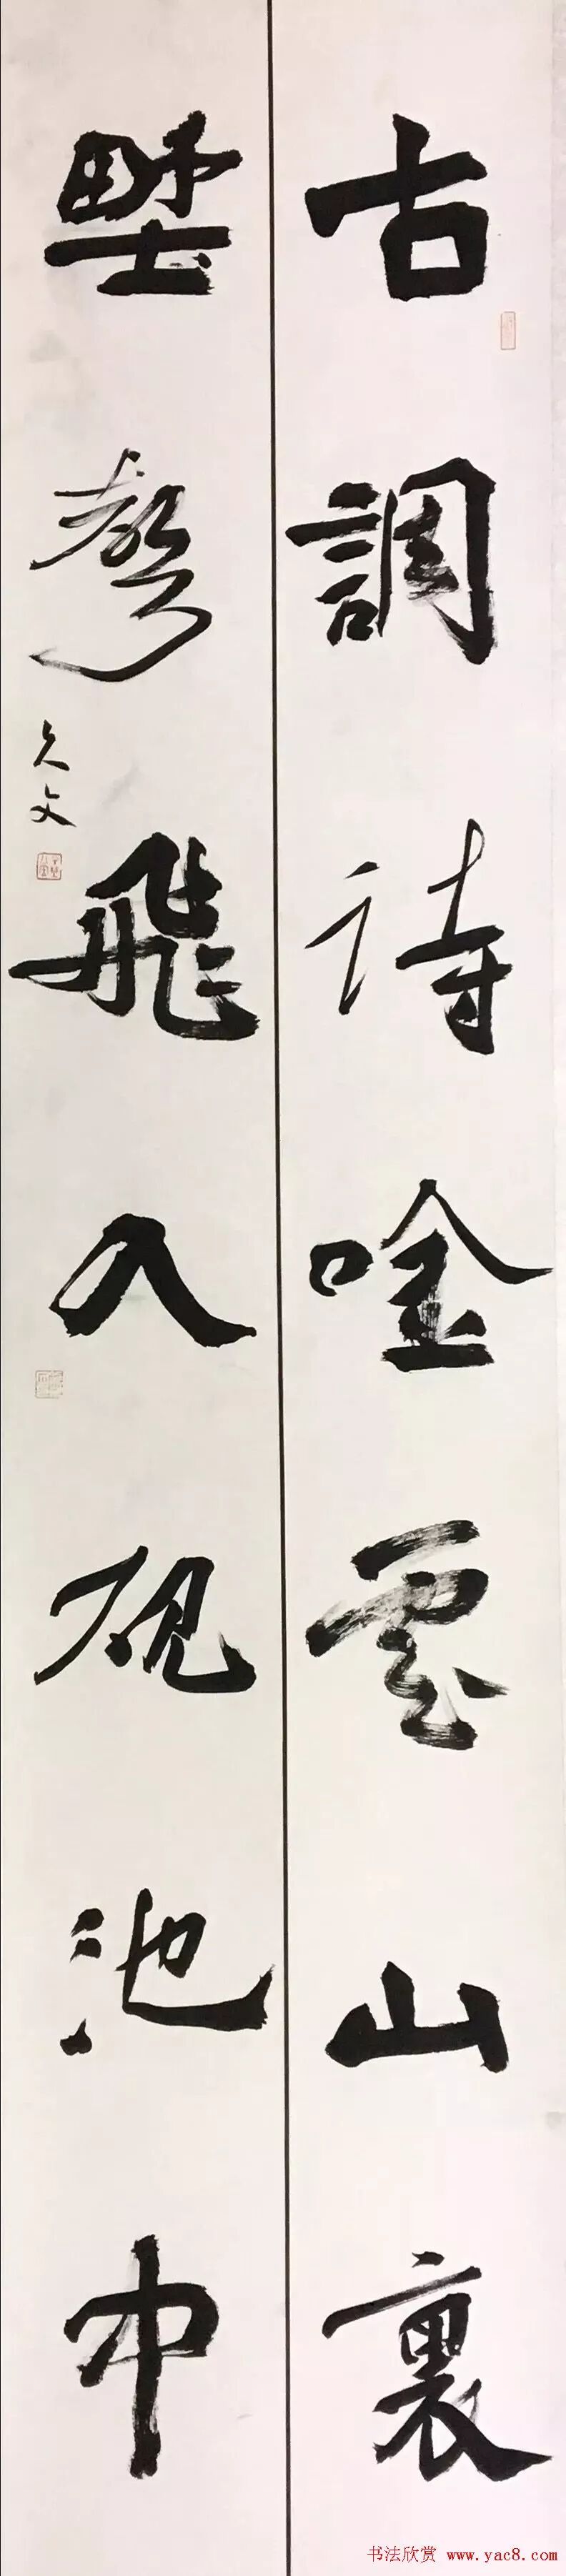 古調詩唫雲山裏
野聲飛入硯池中
久文
书法欣赏 www.yac8.com